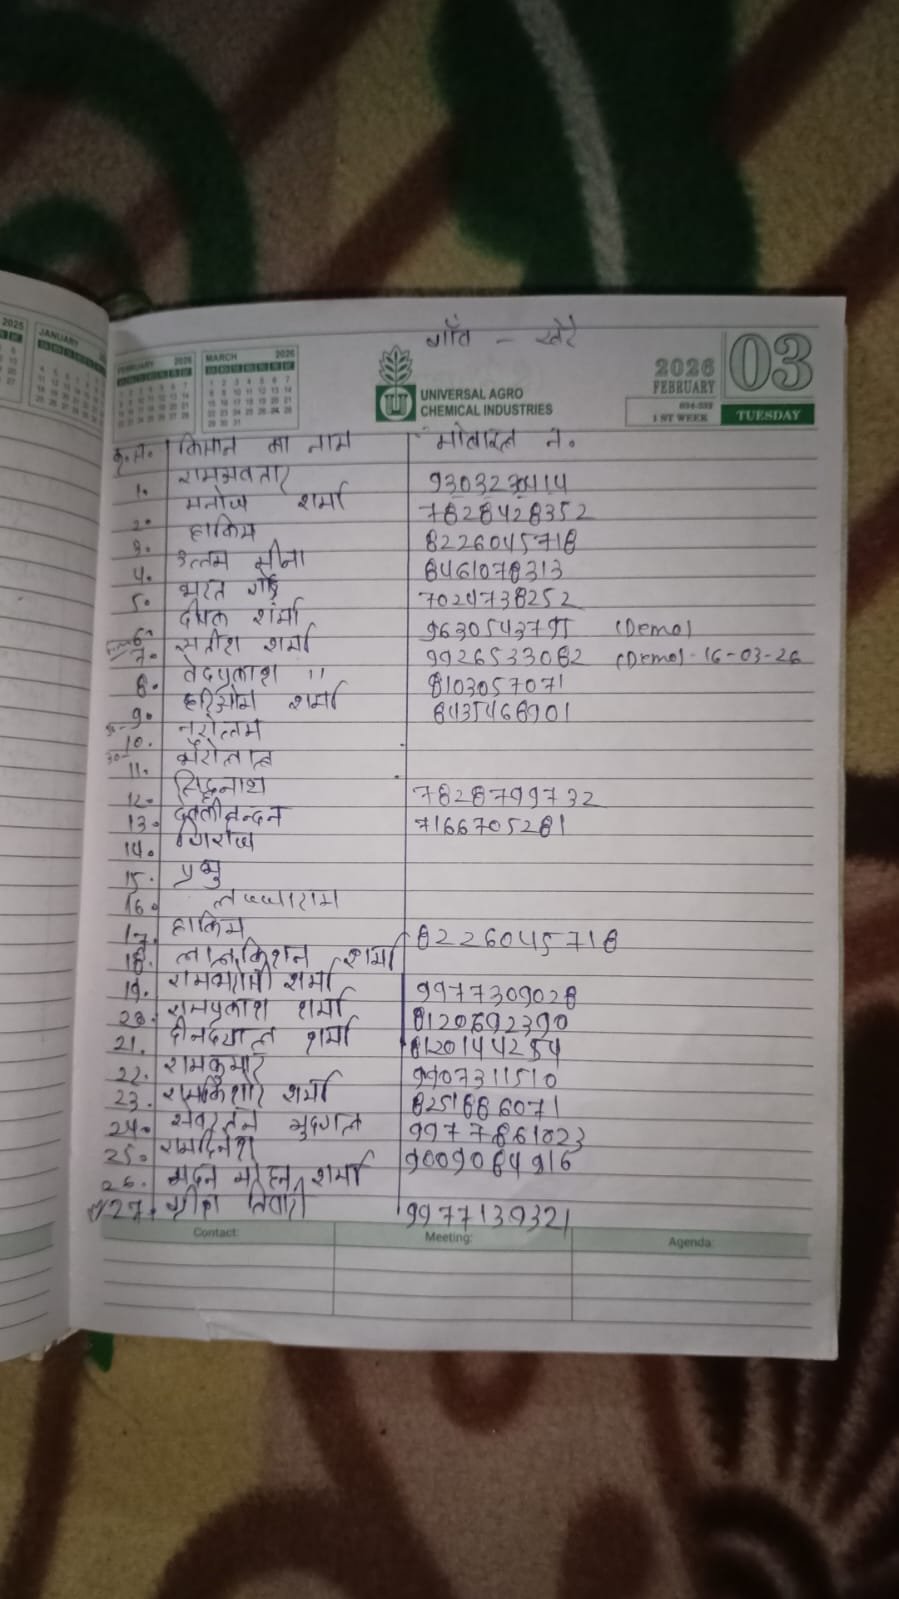 गाँव - खेरे
2026
FEBRUARY
03
1 ST WEEK
TUESDAY
UNIVERSAL AGRO
CHEMICAL INDUSTRIES
JANUARY
FEBRUARY 2026
MARCH 2026
क्र.स. किसान का नाम मोबाइल न.
1. रामअवतार 9303230414
2. मनोज शर्मा 7828428352
3. हाकिम 8226045718
4. उत्तम मीना 8461078313
5. भरत 7024738252
6. दीपक शर्मा 9630543795 (Demo)
7. सतीश शर्मा 9926533082 (Demo)-16-03-26
8. वेदप्रकाश " 8103057071
9. हरिओम शर्मा 8435468901
10. नरोत्तम
11. भैरोलाल
12. सिद्धनाथ 7828799732
13. देवकीनन्दन 7166705281
14. गिर्राज
15. प्रभु
16. लज्जाराम
17. हाकिम 8226045718
18. लालकिशन शर्मा
19. शर्मा 9977309028
20. रामप्रकाश शर्मा 8120692390
21. दीनदयाल शर्मा 8120144254
22. रामकुमार 9907311510
23. रामकिशोर शर्मा 8251886071
24. मुदगल 9977861023
25. रामदिनेश 9009084916
26. मदन मोहन शर्मा
27. तिवारी 9977139321
Contact: Meeting: Agenda: